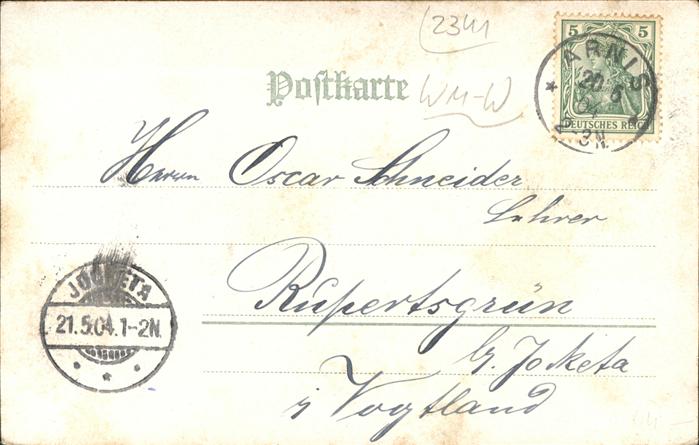 2341
5 5
ARNIS
20.5
04
2-3N.
DEUTSCHES REICH
Postkarte
WM-W
Herrn Oscar Schneider
Lehrer
JOCKETA
21.5.04.1-2N.
Rupertsgrün
b. Jocketa
i Vogtland